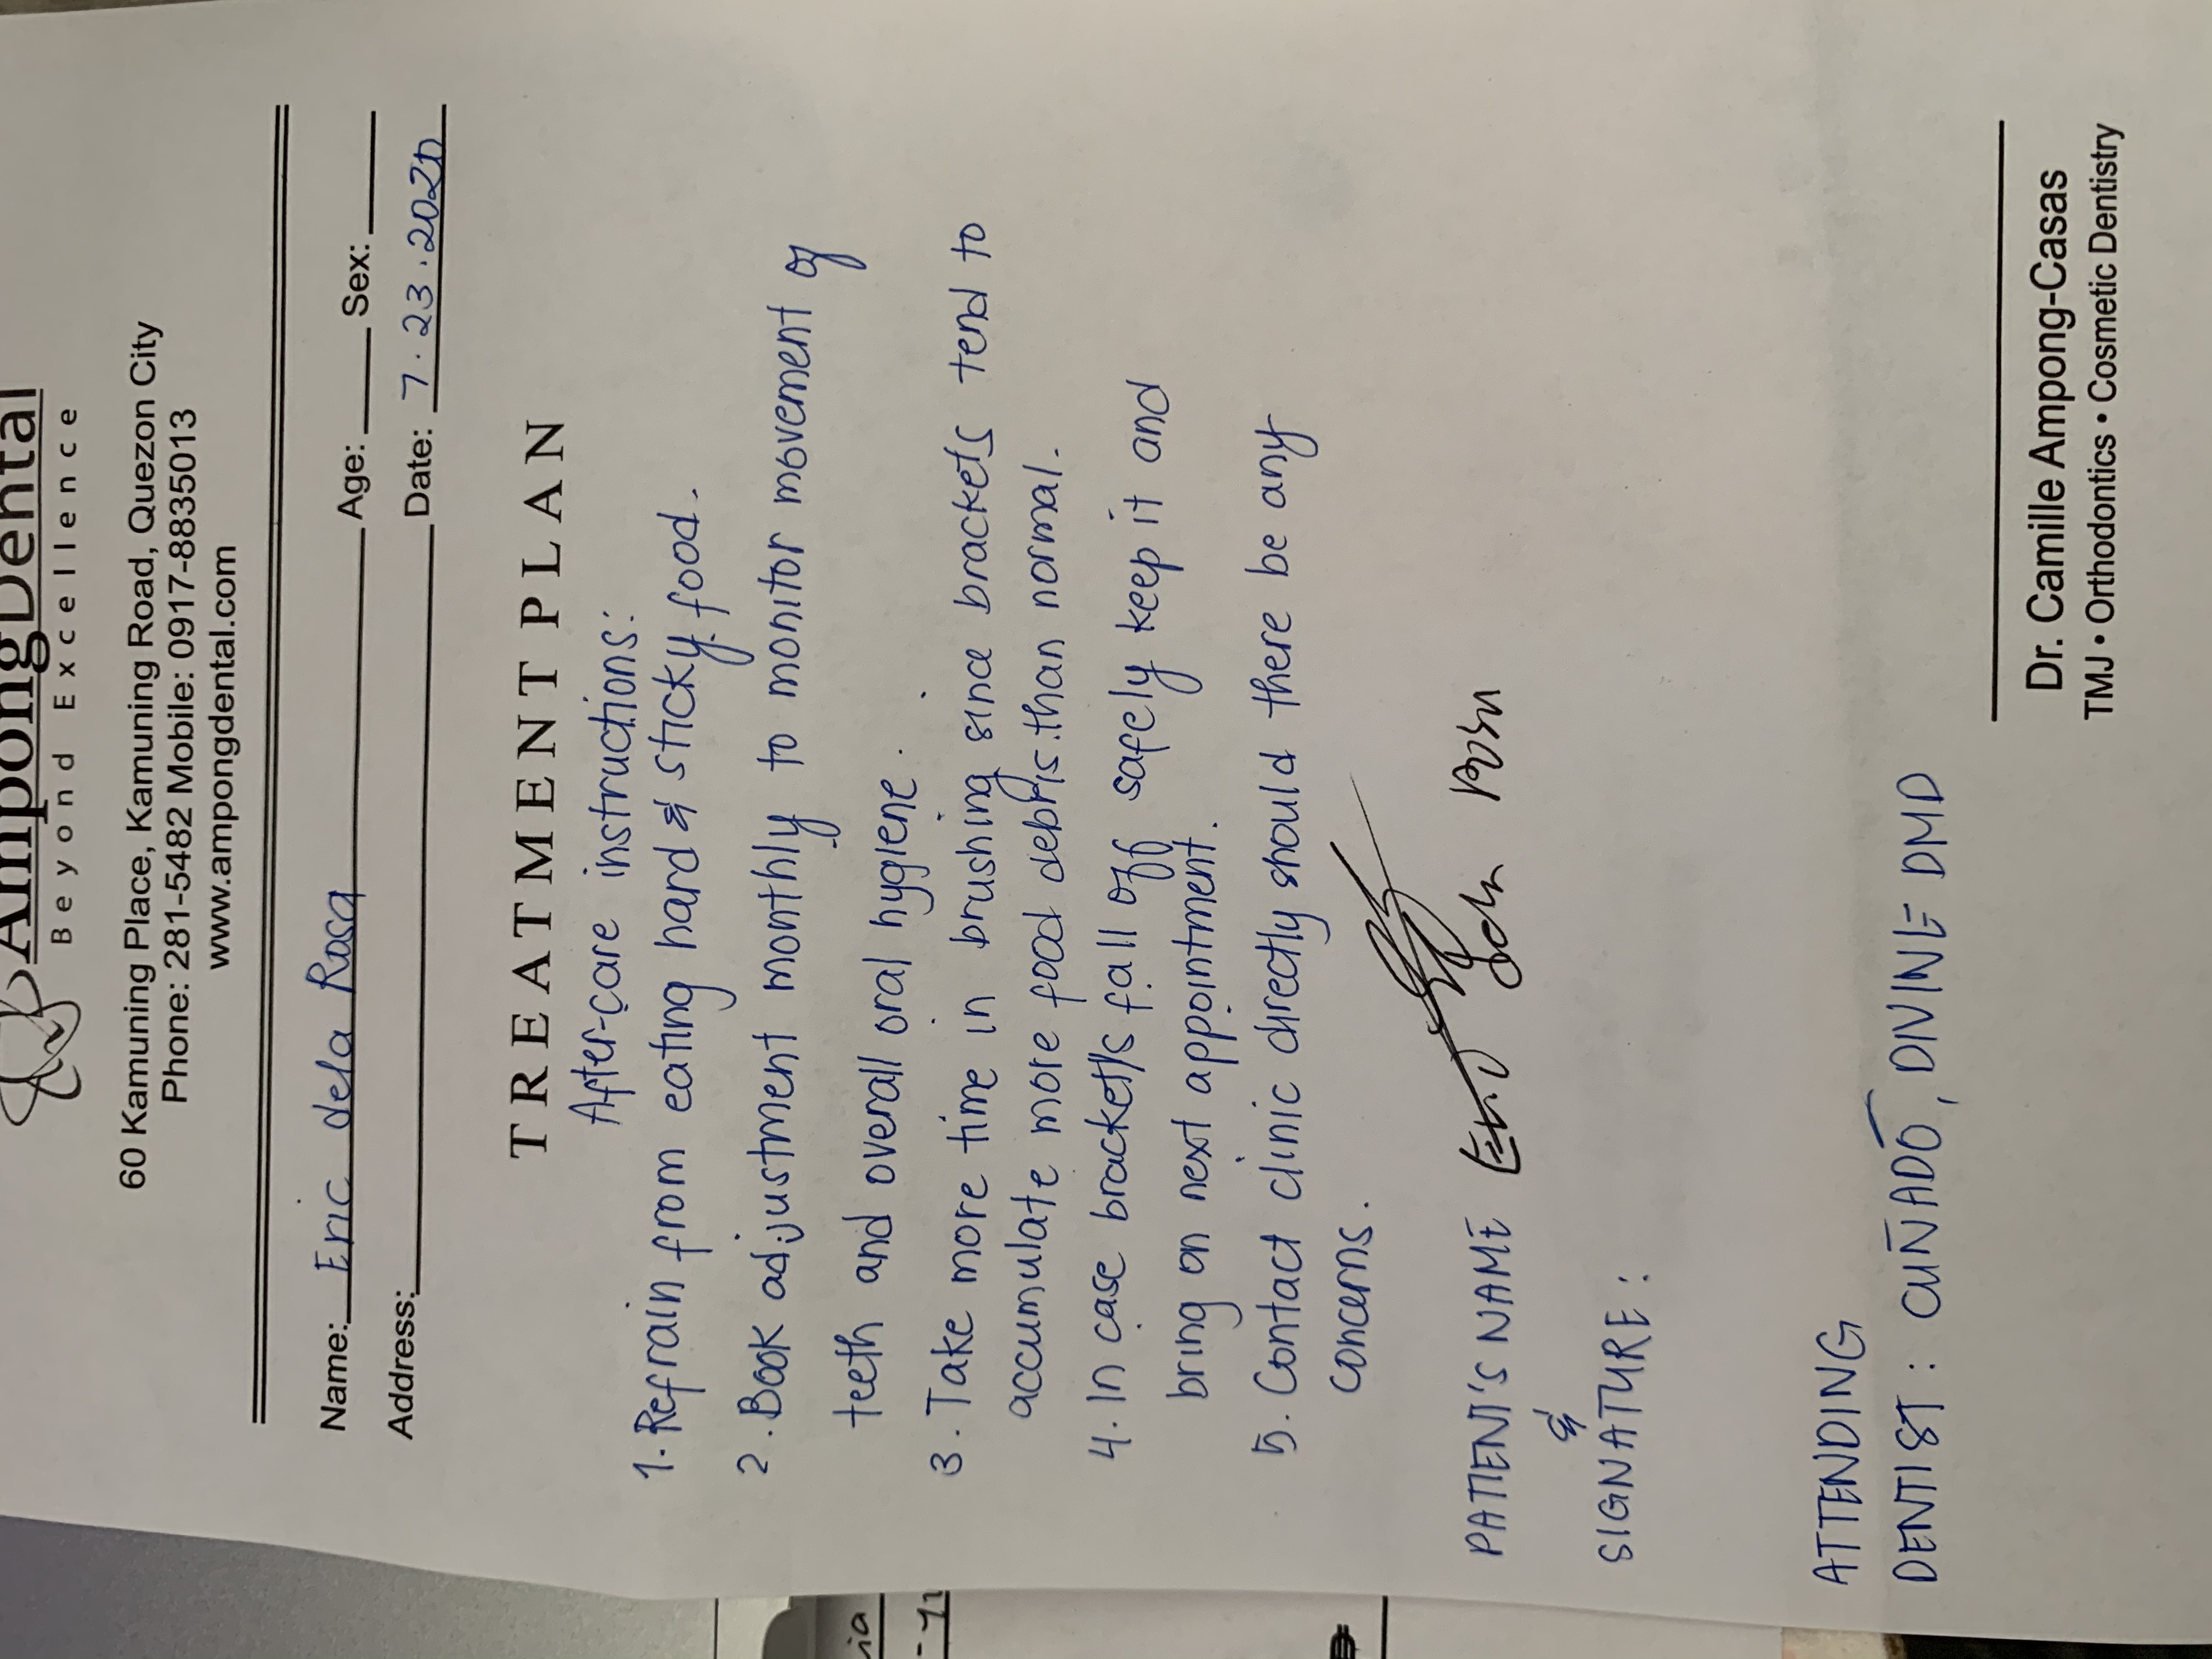 AmpongDental
Beyond Excellence
60 Kamuning Place, Kamuning Road, Quezon City
Phone: 281-5482 Mobile: 0917-8835013
www.ampongdental.com
Name: Eric dela Rosa Age: Sex:
Address: Date: 7.23.2020
TREATMENT PLAN
After-care instructions:
1. Refrain from eating hard & sticky food.
2. Book adjustment monthly to monitor movement of
teeth and overall oral hygiene.
3. Take more time in brushing since brackets tend to
accumulate more food debris than normal.
4. In case bracket/s fall off safely keep it and
bring on next appointment.
5. Contact clinic directly should there be any
concerns.
PATIENT'S NAME Eric dela Rosa
&
SIGNATURE:
ATTENDING
DENTIST: CUÑADO, DIVINE DMD
Dr. Camille Ampong-Casas
TMJ • Orthodontics • Cosmetic Dentistry